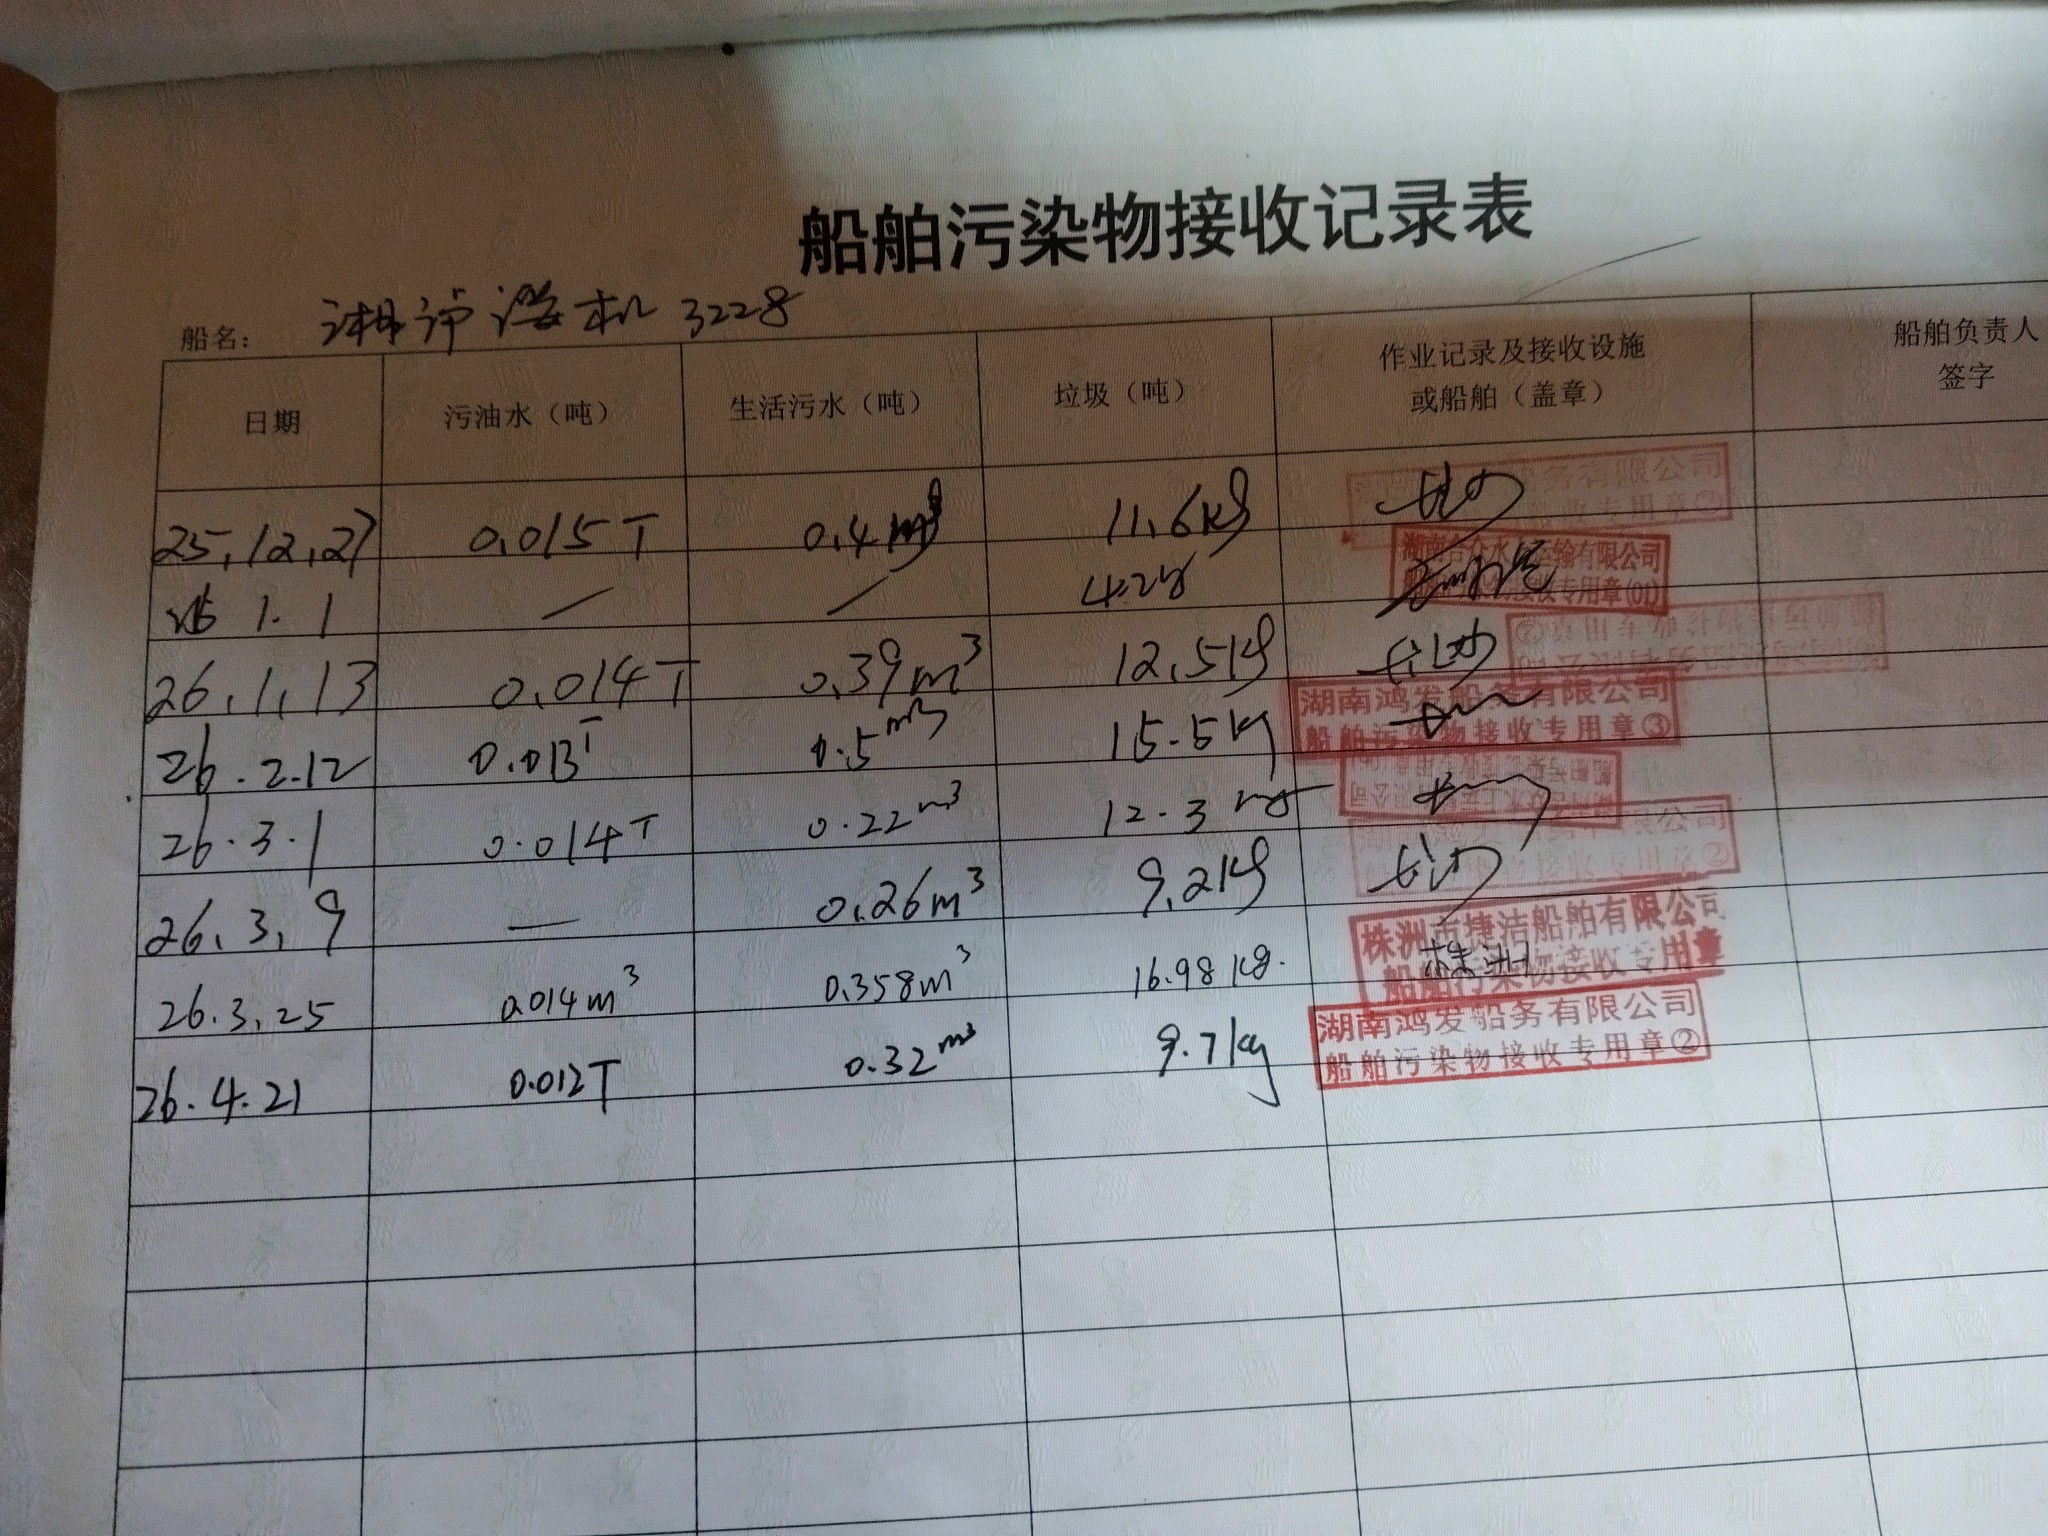 船舶污染物接收记录表
船名： 湘 机 3228
日期 污油水（吨） 生活污水（吨） 垃圾（吨） 作业记录及接收设施或船舶（盖章） 船舶负责人签字
25.12.27 0.015T 0.4m³ 11.6kg 长沙
1.1 — —
26.1.13 0.014T 0.39m³ 12.5kg 长沙
26.2.12 0.013T 0.5m³ 15.5kg
湖南鸿发船务有限公司
船舶污染物接收专用章③
26.3.1 0.014T 0.22m³ 12.3
26.3.9 — 0.26m³ 9.2kg 长沙
26.3.25 0.014m³ 0.358m³ 16.98kg. 株洲
株洲市捷洁船舶有限公司
船舶污染物接收专用章
26.4.21 0.012T 0.32m³ 9.7kg
湖南鸿发船务有限公司
船舶污染物接收专用章②